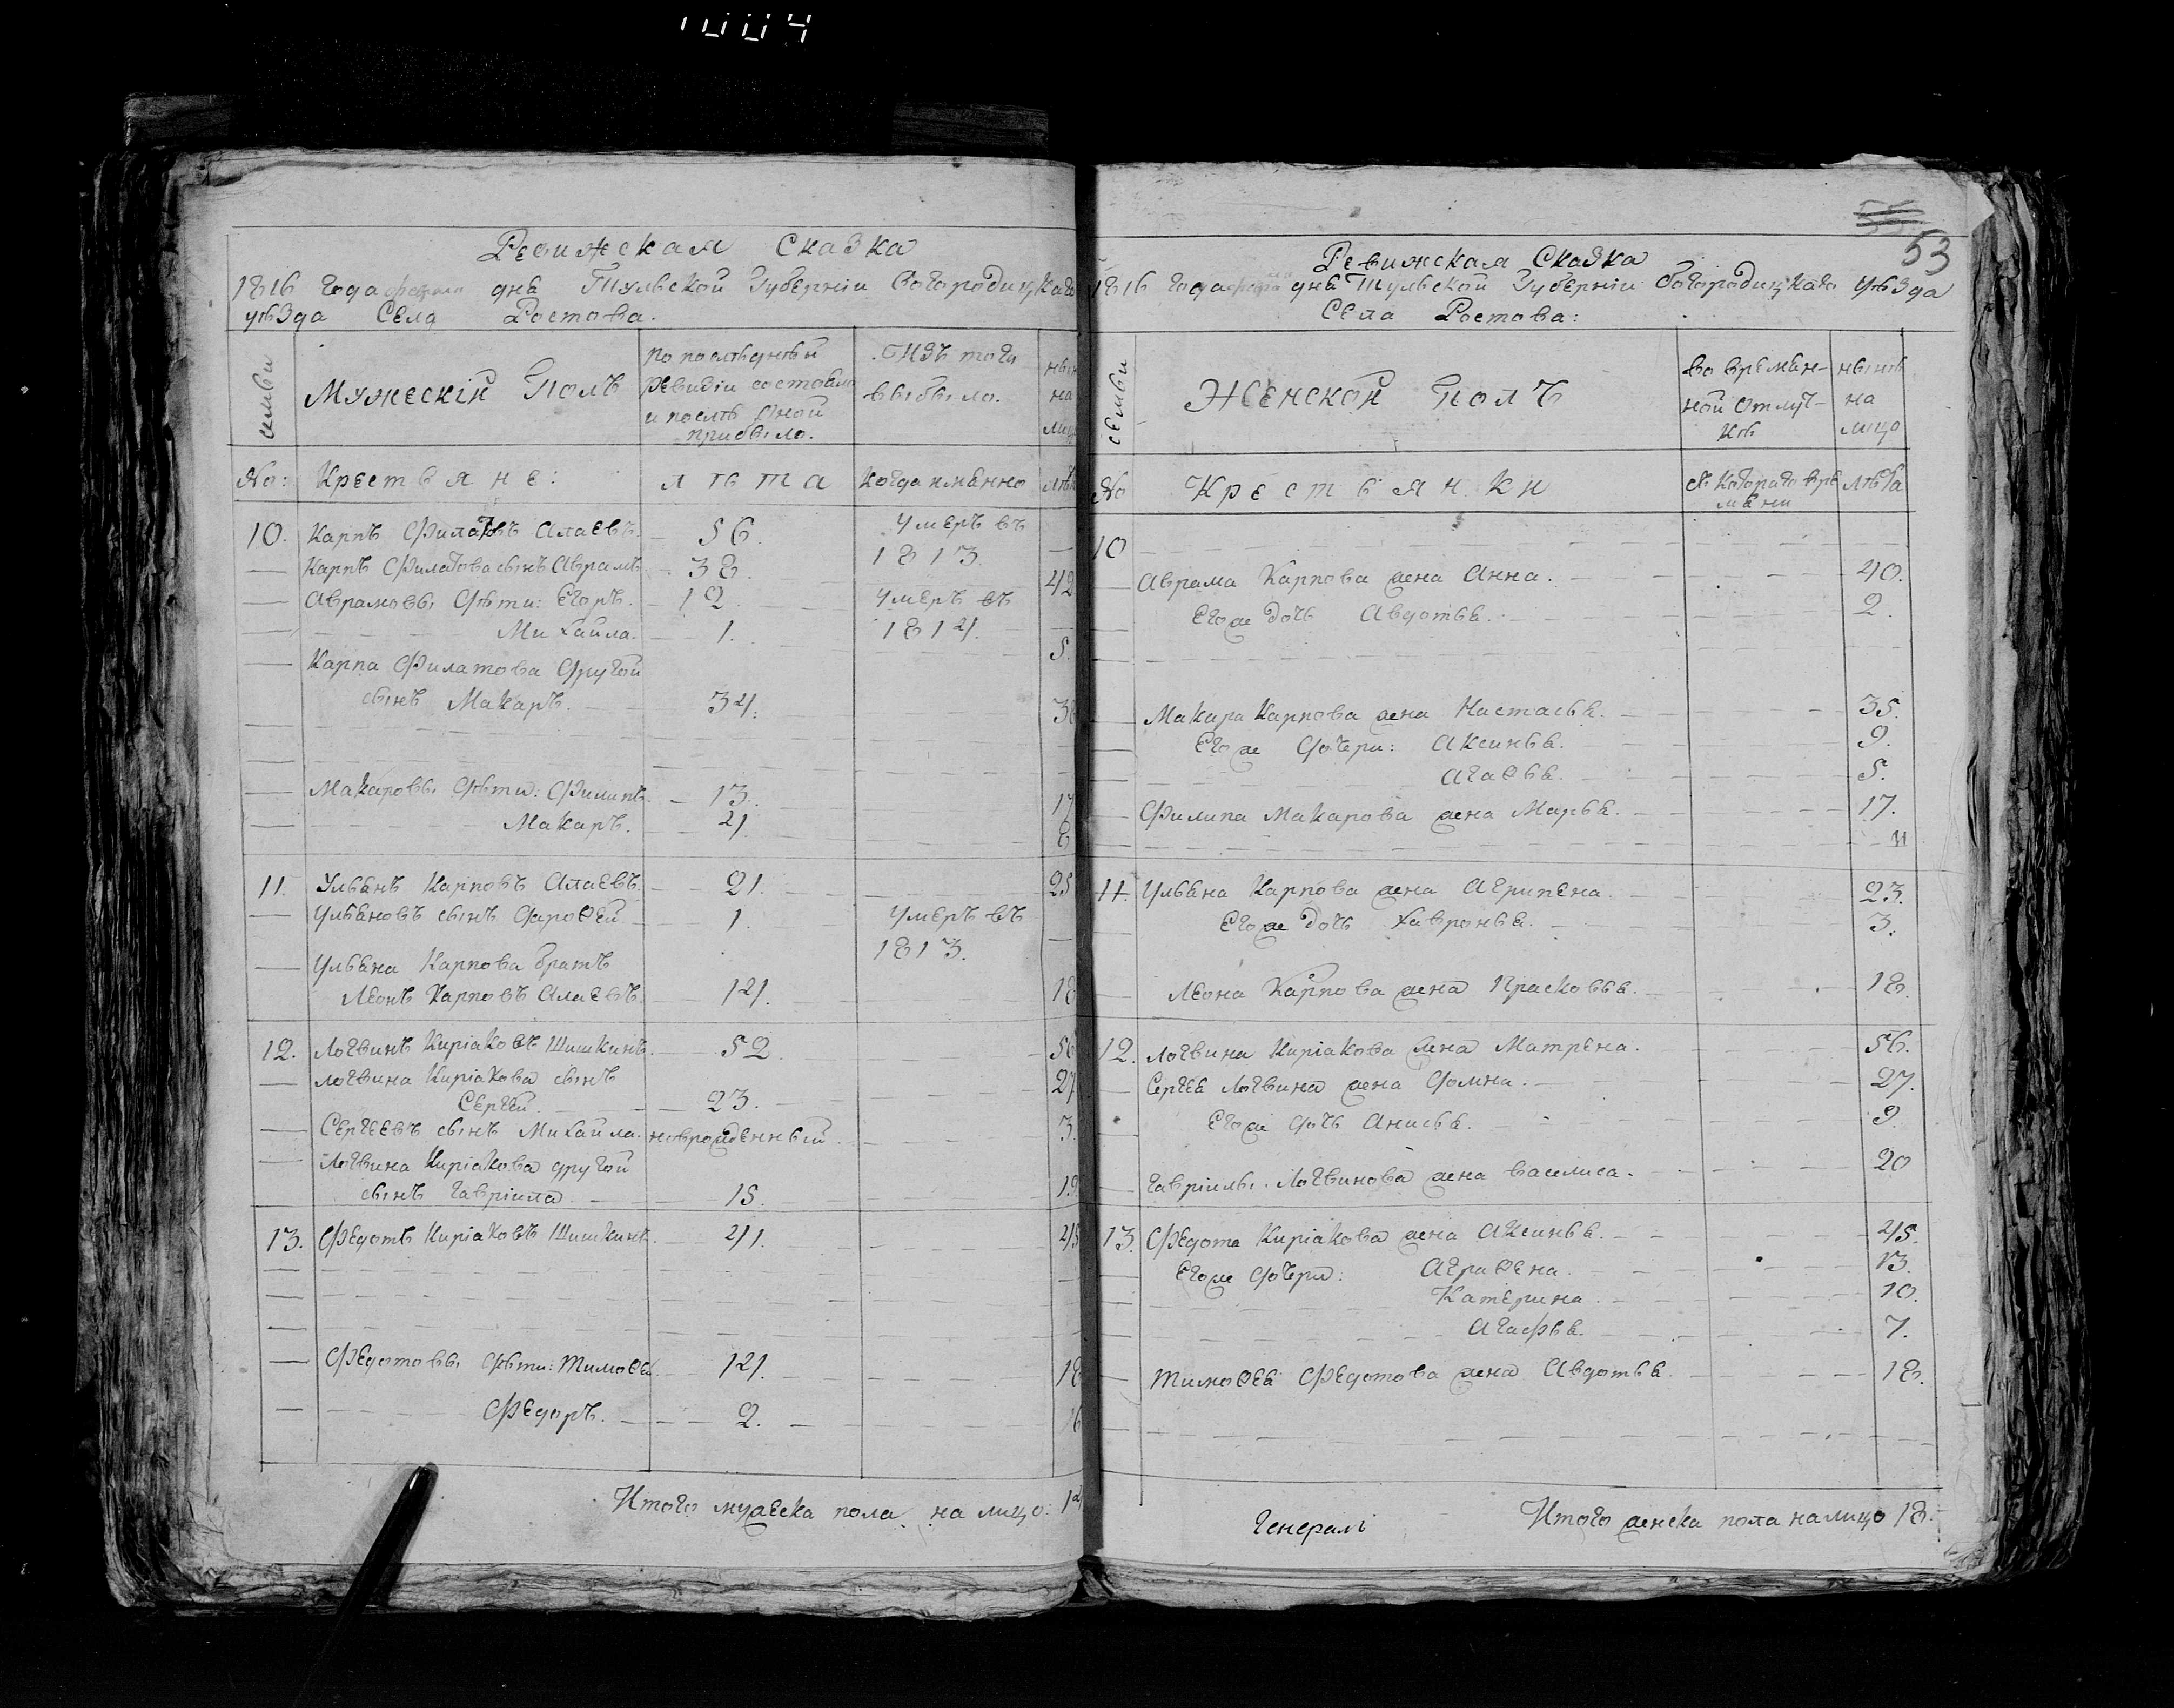 Ревижская Сказка
1816 года дня Тульской Губернiи Богородицкаго
уѣзда Села Ростова.
семьи
Мужескiй Полъ
по послѣдней
ревизiи состояло
и послѣ оной
прибыло.
Изъ того
выбыло.
нын
на
лиц
№: Крестьяне: лѣта когда имянно лѣт
10. Карпъ Филатовъ Алаевъ. 56. умеръ въ
1813
Карпъ Филатова сынъ Аврамъ. 38. 42
Аврамовы дѣти: Егоръ. 12 умеръ въ
Михайла. 1. 1814. 5.
Карпа Филатова другой
сынъ Макаръ. 34. 38
Макаровы дѣти: Филипъ. 13. 17
Макаръ. 4 8
11. Ульянъ Карповъ Алаевъ. 21. 25
Ульяновъ сынъ Дороѳей 1. умеръ въ
1813.
Ульяна Карпова братъ
Леонъ Карповъ Алаевъ. 14. 18
12. Логвинъ Кирiаковъ Шишкинъ. 52. 56
Логвина Кирiакова сынъ 27
Сергей. 23.
Сергеевъ сынъ Михайла. новрожденный. 3.
Логвина Кирiакова другой
сынъ Гаврiила 15. 19.
13. Федотъ Кирiаковъ Шишкинъ. 41. 45
Федотовы дѣти: Тимоѳей. 14. 18
Федоръ. 2. 6
Итого мужеска пола на лицо: 14
55
53
Ревижская Сказка
1816 года дня Тульской Губернiи Богородицкаго уѣзда
Села Ростова:
семьи
Женской Полъ
во времян-
ной отлуч-
кѣ
нынѣ
на
лицо
№ Крестьянки съ котораго вре
мени
лѣта
10
Аврама Карпова жена Анна. 40.
Егоже дочь Авдотья. 2.
Макара Карпова жена Настасья. 35.
Егоже дочери: Аксинья. 9.
Агаѳья. 5.
Филипа Макарова жена Марья. 17.
11. Ульяна Карпова жена Агрипена. 23.
Егоже дочь Хавронья. 3.
Леона Карпова жена Прасковья. 18.
12. Логвина Кирiакова жена Матрена. 56.
Сергея Логвина жена Домна. 27.
Егоже дочь Анисья. 9.
Гаврiилы Логвинова жена Василиса. 20
13. Федота Кирiакова жена Аксинья. 45.
Егоже дочери: Аграѳена. 13.
Катерина. 10.
Агафья. 7.
Тимоѳея Федотова жена Авдотья. 18.
Итого женска пола налицо 18.
Генералъ